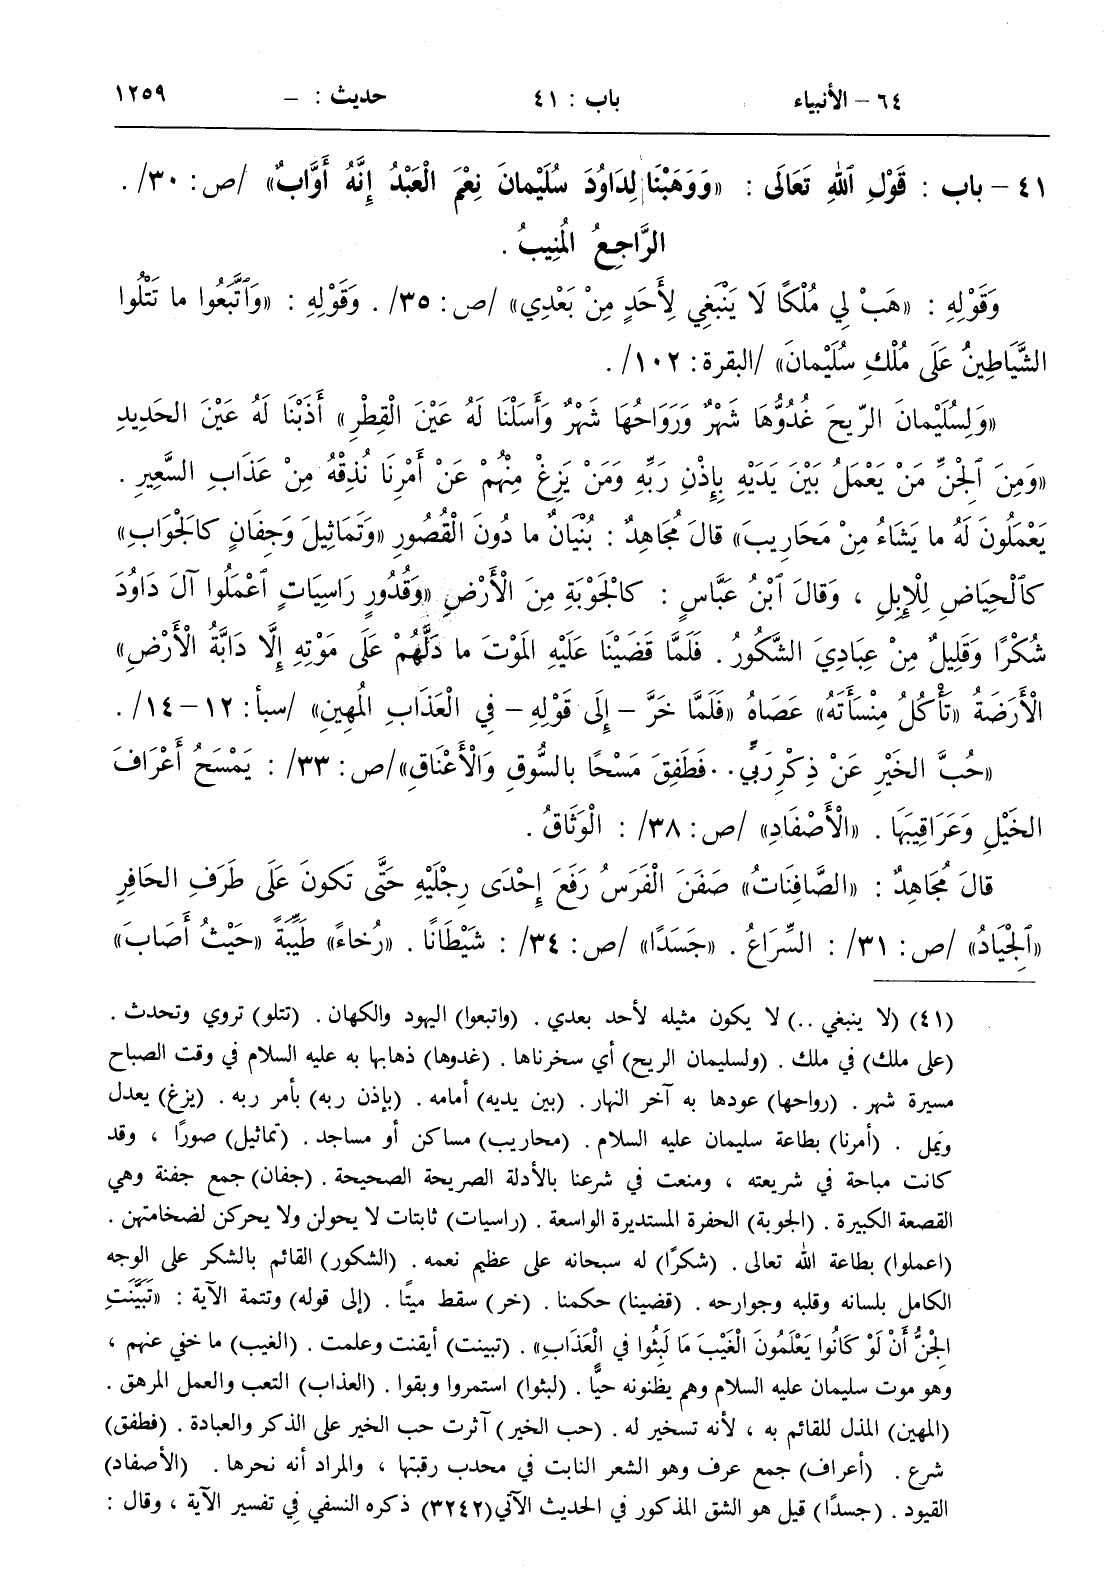 ٦٤ – الأنبياء باب : ٤١ حديث : – ١٢٥٩
٤١ – باب : قَوْلِ ٱللهِ تَعَالَى : «وَوَهَبْنَا لِدَاوُدَ سُلَيْمانَ نِعْمَ الْعَبْدُ إِنَّهُ أَوَّابٌ» /ص : ٣٠/ .
الرَّاجِعُ المُنِيبُ .
وَقَوْلِهِ : «هَبْ لِي مُلْكًا لَا يَنْبَغِي لِأَحَدٍ مِنْ بَعْدِي» /ص : ٣٥/ . وَقَوْلِهِ : «وَٱتَّبَعُوا ما تَتْلُوا
الشَّيَاطِينُ عَلَى مُلْكِ سُلَيْمانَ» /البقرة : ١٠٢/ .
«وَلِسُلَيْمانَ الرِّيحَ غُدُوُّهَا شَهْرٌ وَرَوَاحُهَا شَهْرٌ وَأَسَلْنَا لَهُ عَيْنَ الْقِطْرِ» أَذَبْنَا لَهُ عَيْنَ الحَدِيدِ
«وَمِنَ ٱلْجِنِّ مَنْ يَعْمَلُ بَيْنَ يَدَيْهِ بِإِذْنِ رَبِّهِ وَمَنْ يَزِغْ مِنْهُمْ عَنْ أَمْرِنَا نُذِقْهُ مِنْ عَذَابِ السَّعِيرِ .
يَعْمَلُونَ لَهُ ما يَشَاءُ مِنْ مَحَارِيبَ» قالَ مُجَاهِدٌ : بُنْيَانٌ ما دُونَ الْقُصُورِ «وَتَمَاثِيلَ وَجِفَانٍ كالجَوَابِ»
كَٱلْحِيَاضِ لِلْإِبِلِ ، وَقالَ ٱبْنُ عَبَّاسٍ : كالْجَوْبَةِ مِنَ الْأَرْضِ «وَقُدُورٍ رَاسِيَاتٍ ٱعْمَلُوا آلَ دَاوُدَ
شُكْرًا وَقَلِيلٌ مِنْ عِبَادِيَ الشَّكُورُ . فَلَمَّا قَضَيْنَا عَلَيْهِ المَوْتَ ما دَلَّهُمْ عَلَى مَوْتِهِ إِلَّا دَابَّةُ الْأَرْضِ»
الْأَرَضَةُ «تَأْكُلُ مِنْسَأَتَهُ» عَصَاهُ «فَلَمَّا خَرَّ – إِلَى قَوْلِهِ – في الْعَذَابِ المُهِينِ» /سبأ : ١٢ – ١٤/ .
«حُبَّ الخَيْرِ عَنْ ذِكْرِ رَبِّي . . فَطَفِقَ مَسْحًا بالسُّوقِ وَالْأَعْنَاقِ» /ص : ٣٣/ : يَمْسَحُ أَعْرَافَ
الخَيْلِ وَعَرَاقِيبَهَا . «الْأَصْفَادِ» /ص : ٣٨/ : الْوَثَاقُ .
قالَ مُجَاهِدٌ : «الصَّافِنَاتُ» صَفَنَ الْفَرَسُ رَفَعَ إِحْدَى رِجْلَيْهِ حَتَّى تَكونَ عَلَى طَرَفِ الحَافِرِ
«ٱلْجِيَادُ» /ص : ٣١/ : السِّرَاعُ . «جَسَدًا» /ص : ٣٤/ : شَيْطَانًا . «رُخاءً» طَيِّبَةً «حَيْثُ أَصَابَ»
(٤١) (لا ينبغي ..) لا يكون مثيله لأحد بعدي . (واتبعوا) اليهود والكهان . (تتلو) تروي وتحدث .
(على ملك) في ملك . (ولسليمان الريح) أي سخرناها . (غدوها) ذهابها به عليه السلام في وقت الصباح
مسيرة شهر . (رواحها) عودها به آخر النهار . (بين يديه) أمامه . (بإذن ربه) بأمر ربه . (يزغ) يعدل
ويَمل . (أمرنا) بطاعة سليمان عليه السلام . (محاريب) مساكن أو مساجد . (تماثيل) صورًا ، وقد
كانت مباحة في شريعته ، ومنعت في شرعنا بالأدلة الصريحة الصحيحة . (جفان) جمع جفنة وهي
القصعة الكبيرة . (الجوبة) الحفرة المستديرة الواسعة . (راسيات) ثابتات لا يحولن ولا يحركن لضخامتهن .
(اعملوا) بطاعة الله تعالى . (شكرًا) له سبحانه على عظيم نعمه . (الشكور) القائم بالشكر على الوجه
الكامل بلسانه وقلبه وجوارحه . (قضينا) حكمنا . (خر) سقط ميتًا . (إلى قوله) وتتمة الآية : «تَبَيَّنَتِ
الجِنُّ أَنْ لَوْ كَانُوا يَعْلَمُونَ الْغَيْبَ مَا لَبِثُوا في الْعَذَابِ» . (تبينت) أيقنت وعلمت . (الغيب) ما خفي عنهم ،
وهو موت سليمان عليه السلام وهم يظنونه حيًّا . (لبثوا) استمروا وبقوا . (العذاب) التعب والعمل المرهق .
(المهين) المذل للقائم به ، لأنه تسخير له . (حب الخير) آثرت حب الخير على الذكر والعبادة . (فطفق)
شرع . (أعراف) جمع عرف وهو الشعر النابت في محدب رقبتها ، والمراد أنه نحرها . (الأصفاد)
القيود . (جسدًا) قيل هو الشق المذكور في الحديث الآتي (٣٢٤٢) ذكره النسفي في تفسير الآية ، وقال :